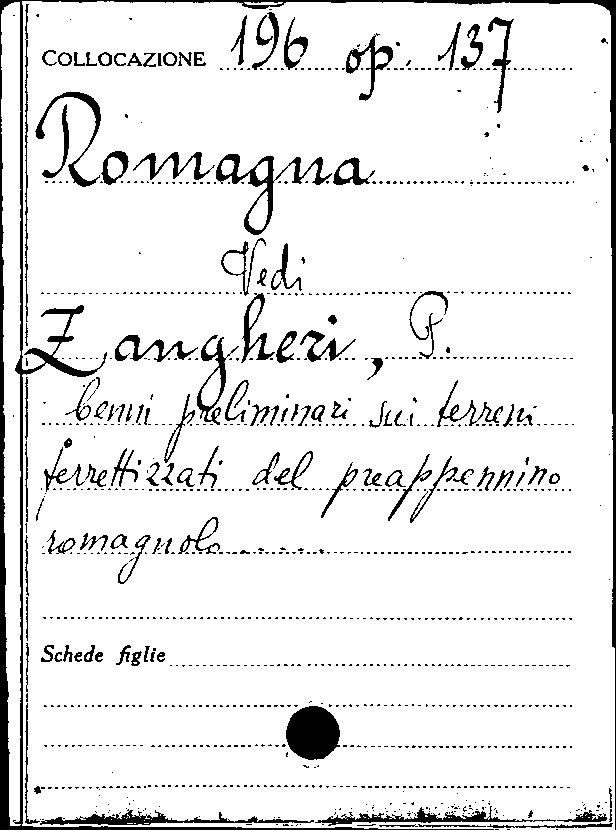 COLLOCAZIONE 196 op. 137
Romagna
Vedi
Zangheri, P.
Cenni preliminari sui terreni
ferrettizzati del preappennino
romagnolo .....
Schede figlie